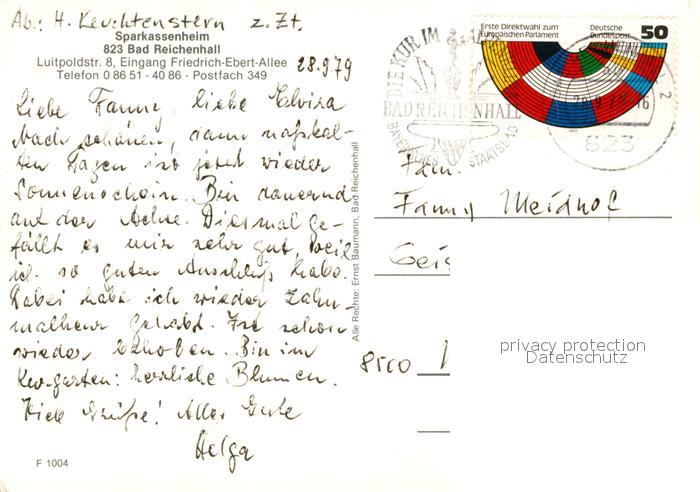 Ab.: H. Leuchtenstern z. Zt.
Sparkassenheim
823 Bad Reichenhall
Luitpoldstr. 8, Eingang Friedrich-Ebert-Allee
Telefon 0 86 51 - 40 86 · Postfach 349
28.9.79
Liebe Fanny, liebe Elvira
Nach schönen, dann naßkal-
ten Tagen ist jetzt wieder
Sonnenschein. Bin dauernd
auf der Achse. Diesmal ge-
fällt es mir sehr gut, weil
ich so guten Anschluß habe.
Dabei habe ich wieder Zahn-
malheur gehabt. Ist schon
wieder behoben. Bin im
Kurgarten: herrliche Blumen.
Viele Grüße! Alles Gute
Helga
F 1004
Alle Rechte: Ernst Baumann, Bad Reichenhall
Erste Direktwahl zum
Europäischen Parlament
Deutsche
Bundespost
50
DIE KUR IM
BAD REICHENHALL
BAYERISCHES STAATSBAD
823
Fam.
Fanny Meidhof
8500
privacy protection
Datenschutz